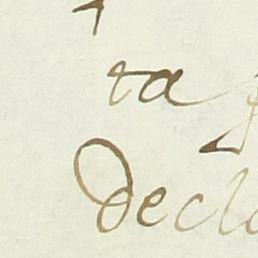 ta
decla